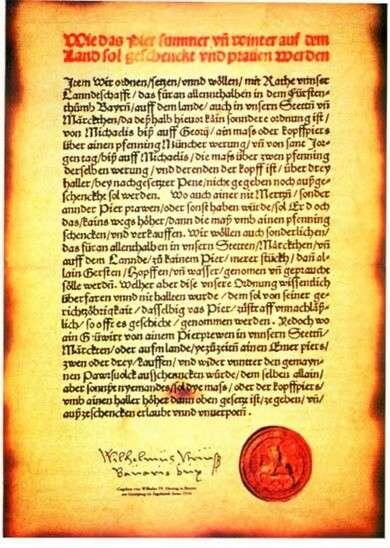 Wie das Pier summer vñ winter auf dem
Land sol geschenckt vnd prauen werden
Item Wir ordnen/setzen/vnnd wöllen/mit Rathe vnnser
Lanndeschafft/das füran allenthalben in dem Fürsten-
thůmb Bayrñ/auff dem lande/auch in vnsern Stettñ vñ
Märckthen/da deßhalb hieuor kain sonndere ordnung ist/
von Michaelis biß auff Georij/ain mass oder kopffpiers
über ainen pfenning Müncher werung/vñ von sant Jor-
gentag/biß auff Michaelis/die mass über zwen pfenning
derselben werung/vnd derenden der kopff ist/über drey
haller/bey nachgesetzter Pene/nicht gegeben noch außge-
schenckht sol werden. Wo auch ainer nit Mertzñ/sonder
annder Pier prawen/oder sonst haben würde/sol Er doch
das/kains wegs höher/dann die mass vmb ainen pfenning
schencken/vnd verkauffen. Wir wöllen auch sonderlichen/
das füran allenthalben in vnsern Stetten/Märckthen/vñ
auff dem Lannde/zů kainem Pier/merer stückh/dañ al-
lain Gersten/Hopffen/vñ wasser/genomen vñ gepraucht
sölle werden. Welher aber dise vnsere Ordnung wissendlich
überfaren vnnd nit hallten wurde/dem sol von seiner ge-
richtzöbrigkait/dasselbig vas Pier/zůstraff vnnachläß-
lich/so offt es geschicht/genommen werden. Yedoch wo
ain Göuwirt von ainem Pierprewen in vnnsern Stettñ/
Märckten/oder aufm lande/yezůzeitn ainen Emer piers/
zwen oder drey/kauffen/vnd wider vnntter den gemayn-
nen Pawrsuolck ausschencken würde/dem selben allain/
aber sonnst nyemandes/sol dye mass/oder der kopffpiers/
vmb ainen haller höher dann oben gesetzt ist/ze geben/vñ/
außzeschencken erlaubt vnnd vnuerpotñ.
Wilhelmus
Bavarie Dux
Gegeben von Wilhelm IV. Herzog in Bayern
am Georgitag zu Ingolstadt Anno 1516